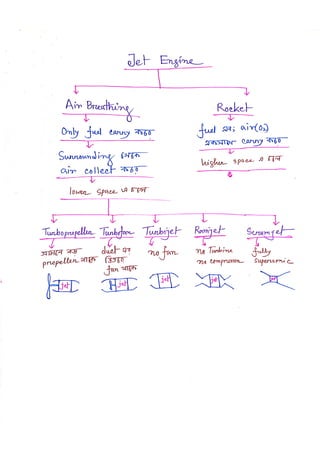 Jet Engine
Air Breathing
Rocket
Only fuel carry করে
fuel এবং air(O₂)
carry করে
Surrounding থেকে
air collect করে
higher space এ চলে
lower space এ চলে
Turbopropeller Turbofan Turbojet Ramjet Scramjet
propeller থাকে
duct এর
ভিতরে
fan থাকে
no fan
no Turbine
no compressor
fully
supersonic
jet
jet
jet
jet